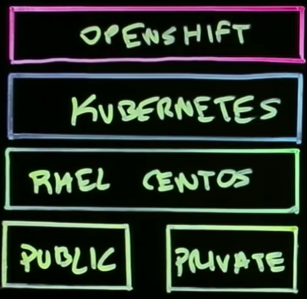 OPENSHIFT
KUBERNETES
RHEL CENTOS
PUBLIC PRIVATE